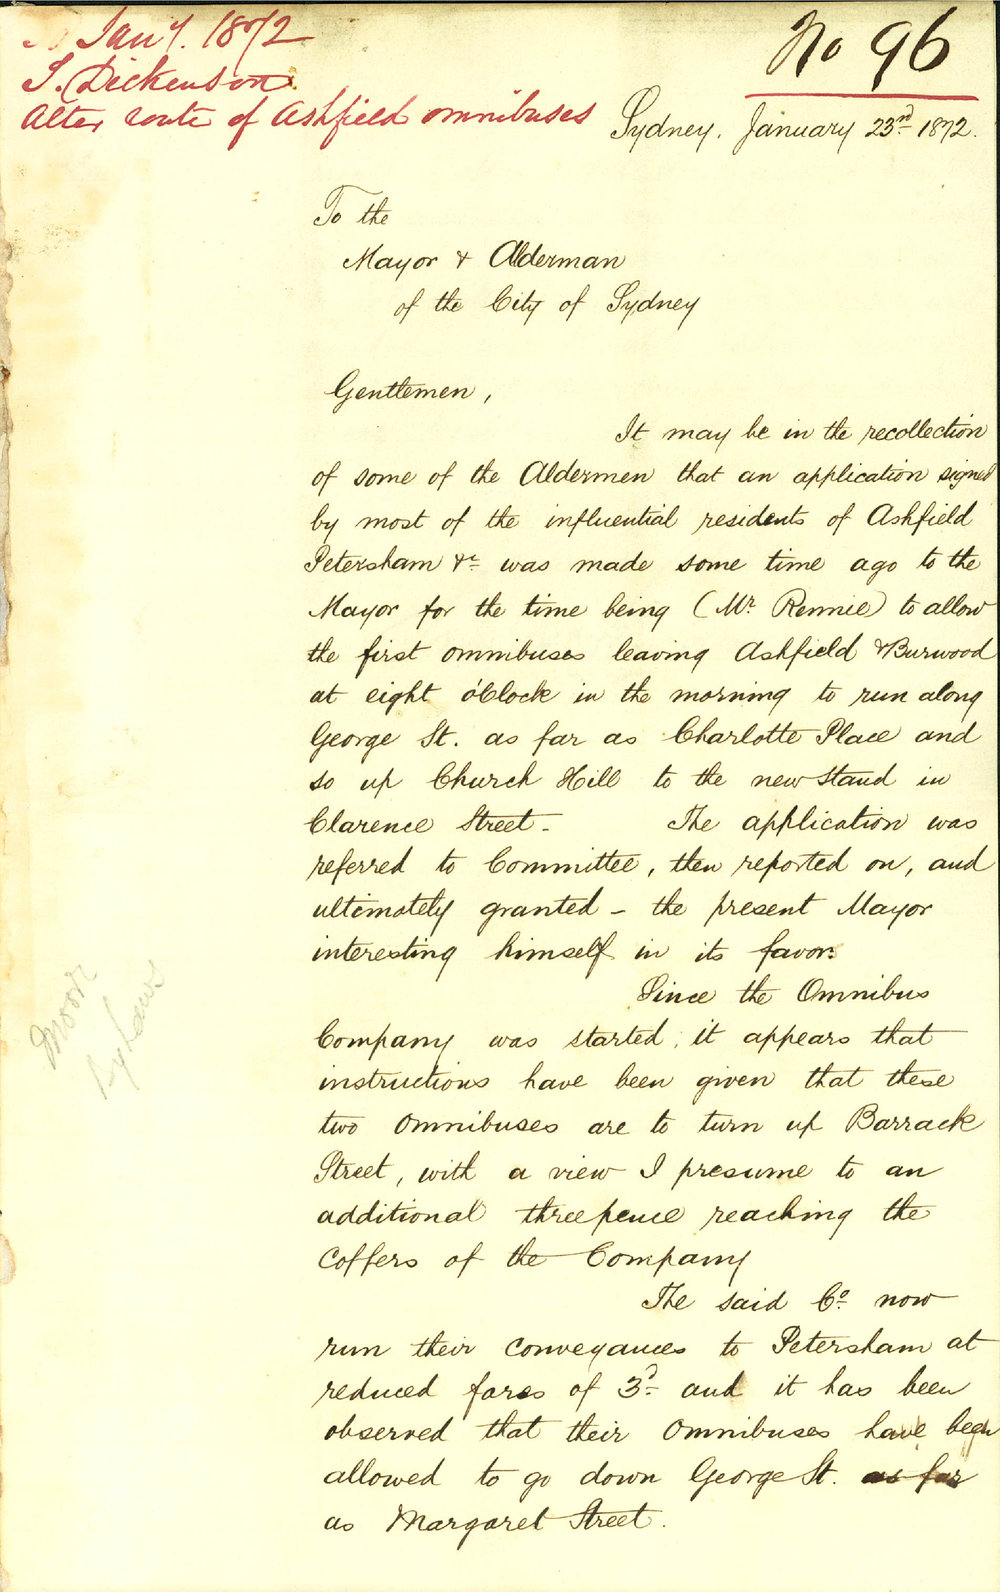 Jany. 1872
S. Dickenson
Alter route of Ashfield omnibuses
No 96
Sydney, January 23rd 1872.
To the
Mayor & Alderman
of the City of Sydney
Gentlemen,
It may be in the recollection
of some of the Aldermen that an application signed
by most of the influential residents of Ashfield
Petersham &c was made some time ago to the
Mayor for the time being (Mr. Rennie) to allow
the first omnibuses leaving Ashfield & Burwood
at eight o'Clock in the morning to run along
George St. as far as Charlotte Place and
so up Church Hill to the new stand in
Clarence Street - The application was
referred to Committee, then reported on, and
ultimately granted - the present Mayor
interesting himself in its favor.
Since the Omnibus
Company was started, it appears that
instructions have been given that these
two omnibuses are to turn up Barrack
Street, with a view I presume to an
additional threepence reaching the
coffers of the Company
The said Co. now
run their conveyances to Petersham at
reduced fares of 3d and it has been
observed that their omnibuses have been
allowed to go down George St. as far
as Margaret Street.